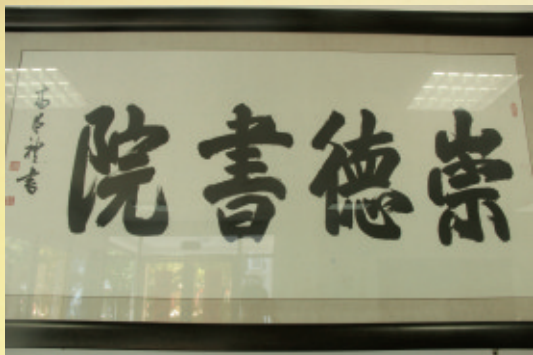 崇德書院